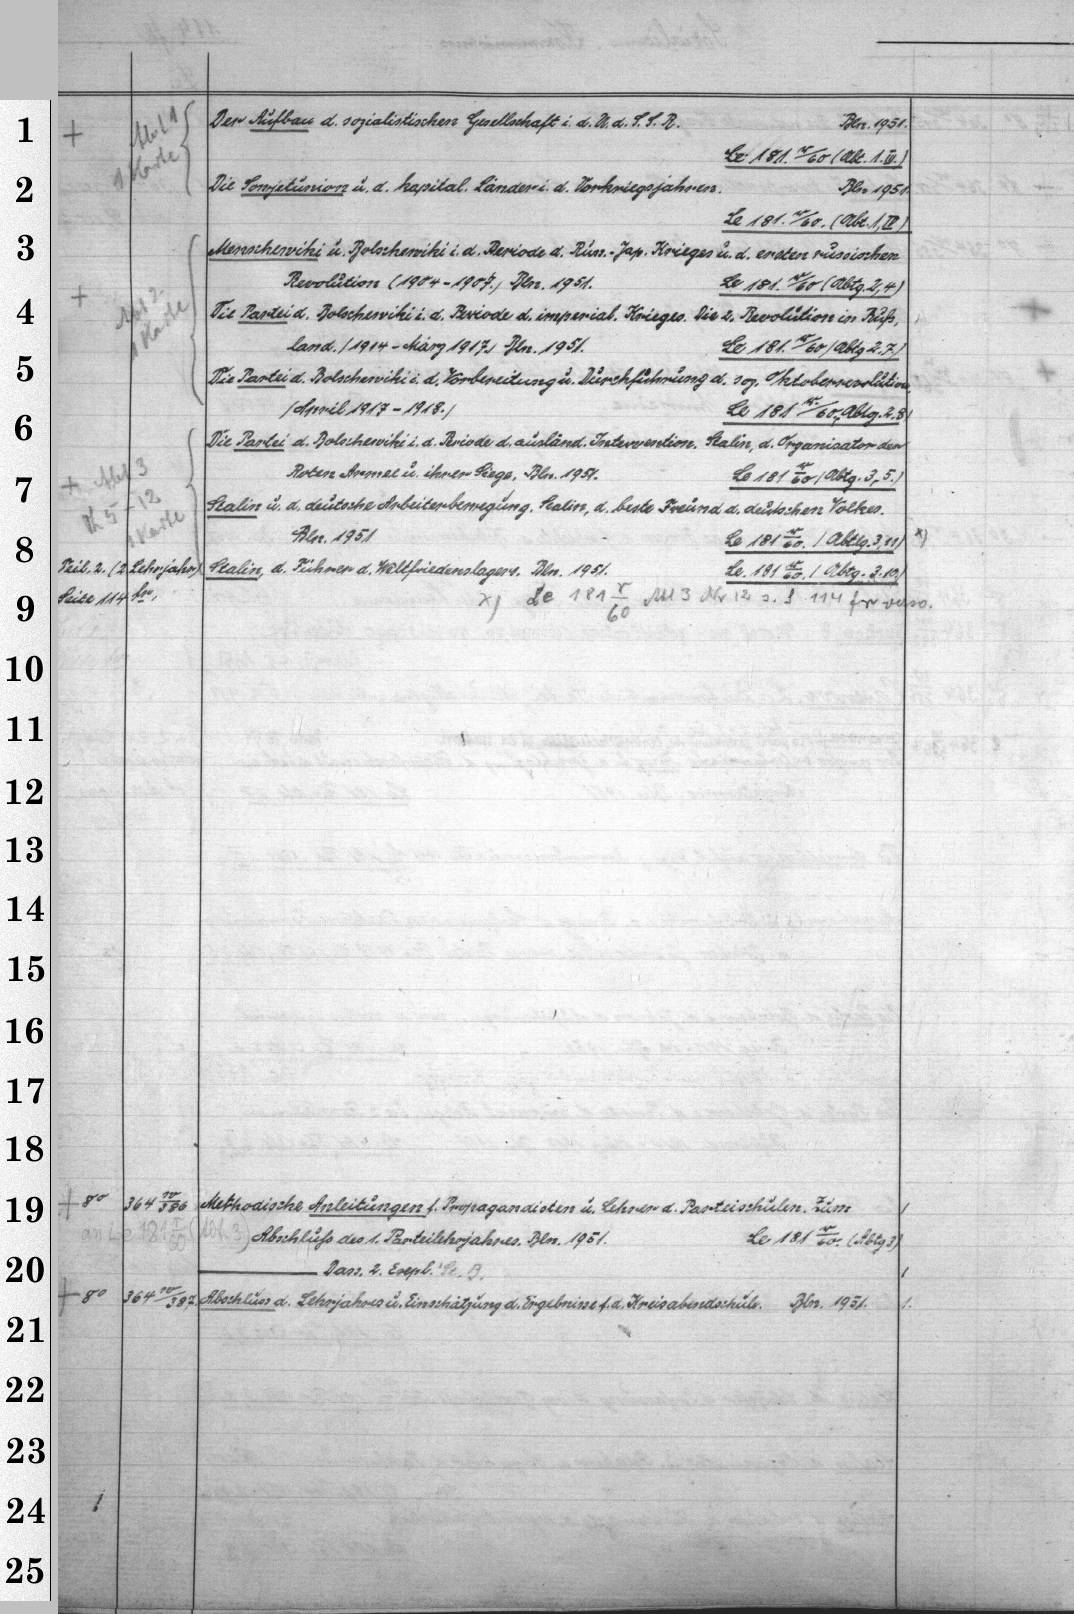 1 + Abt 1 Der Aufbau d. sozialistischen Gesellschaft i. d. U. d. S. S. R. Bln. 1951.
1 Karte Le 181. V/60 (Abt. 1.IV.)
2 Die Sowjetunion u. d. kapital. Länder i. d. Vorkriegsjahren. Bln 1951.
Le 181. V/60. (Abt. 1, IV)
3 Menschewiki u. Bolschewiki i. d. Periode d. Russ.-Jap. Krieges u. d. ersten russischen
+ Abt 2 Revolution (1904-1907.) Bln. 1951. Le 181. V/60 (Abtg. 2,4)
4 1 Karte Die Partei d. Bolschewiki i. d. Periode d. imperial. Krieges. Die 2. Revolution in Ruß,
land. (1914 - März 1917.) Bln. 1951. Le 181. V/60 (Abtg 2.7.)
5 Die Partei d. Bolschewiki i. d. Vorbereitung u. Durchführung d. soz. Oktoberrevolution
(April 1917 - 1918.) Le 181 V/60, Abtg. 2.8)
6 Die Partei d. Bolschewiki i. d. Periode d. ausländ. Intervention. Stalin, d. Organisator der
+ Abt 3 Roten Armee u. ihrer Siege. Bln. 1951. Le 181 V/60 (Abtg. 3,5.)
7 5-12 Stalin u. d. deutsche Arbeiterbewegung. Stalin, d. beste Freund d. deutschen Volkes.
1 Karte Bln. 1951 Le 181 V/60. (Abtlg. 3,11) x)
8 Teil. 2. (2 Lehrjahr) Stalin, d. Führer d. Weltfriedenslagers. Bln. 1951. Le. 181 V/60. (Abtg. 3.10)
9 Seite 114 x) Le 181 V/60 Abt 3 Nr 12 s. f 114 verso.
10
11
12
13
14
15
16
17
18
19 + 8° 364 IV/386 Methodische Anleitungen f. Propagandisten u. Lehrer d. Parteischulen. Zum 1
an Le 181 V/60 (Abt. 3) Abschluß des 1. Parteilehrjahres. Bln. 1951. Le 181 V/60. (Abtg 3)
20 Dass. 2. Exepl. 1
+ 8° 364 IV/387. Abschluss d. Lehrjahres u. Einschätzung d. Ergebnisse f. d. Kreisabendschule. Bln. 1951. 1.
21
22
23
24
25